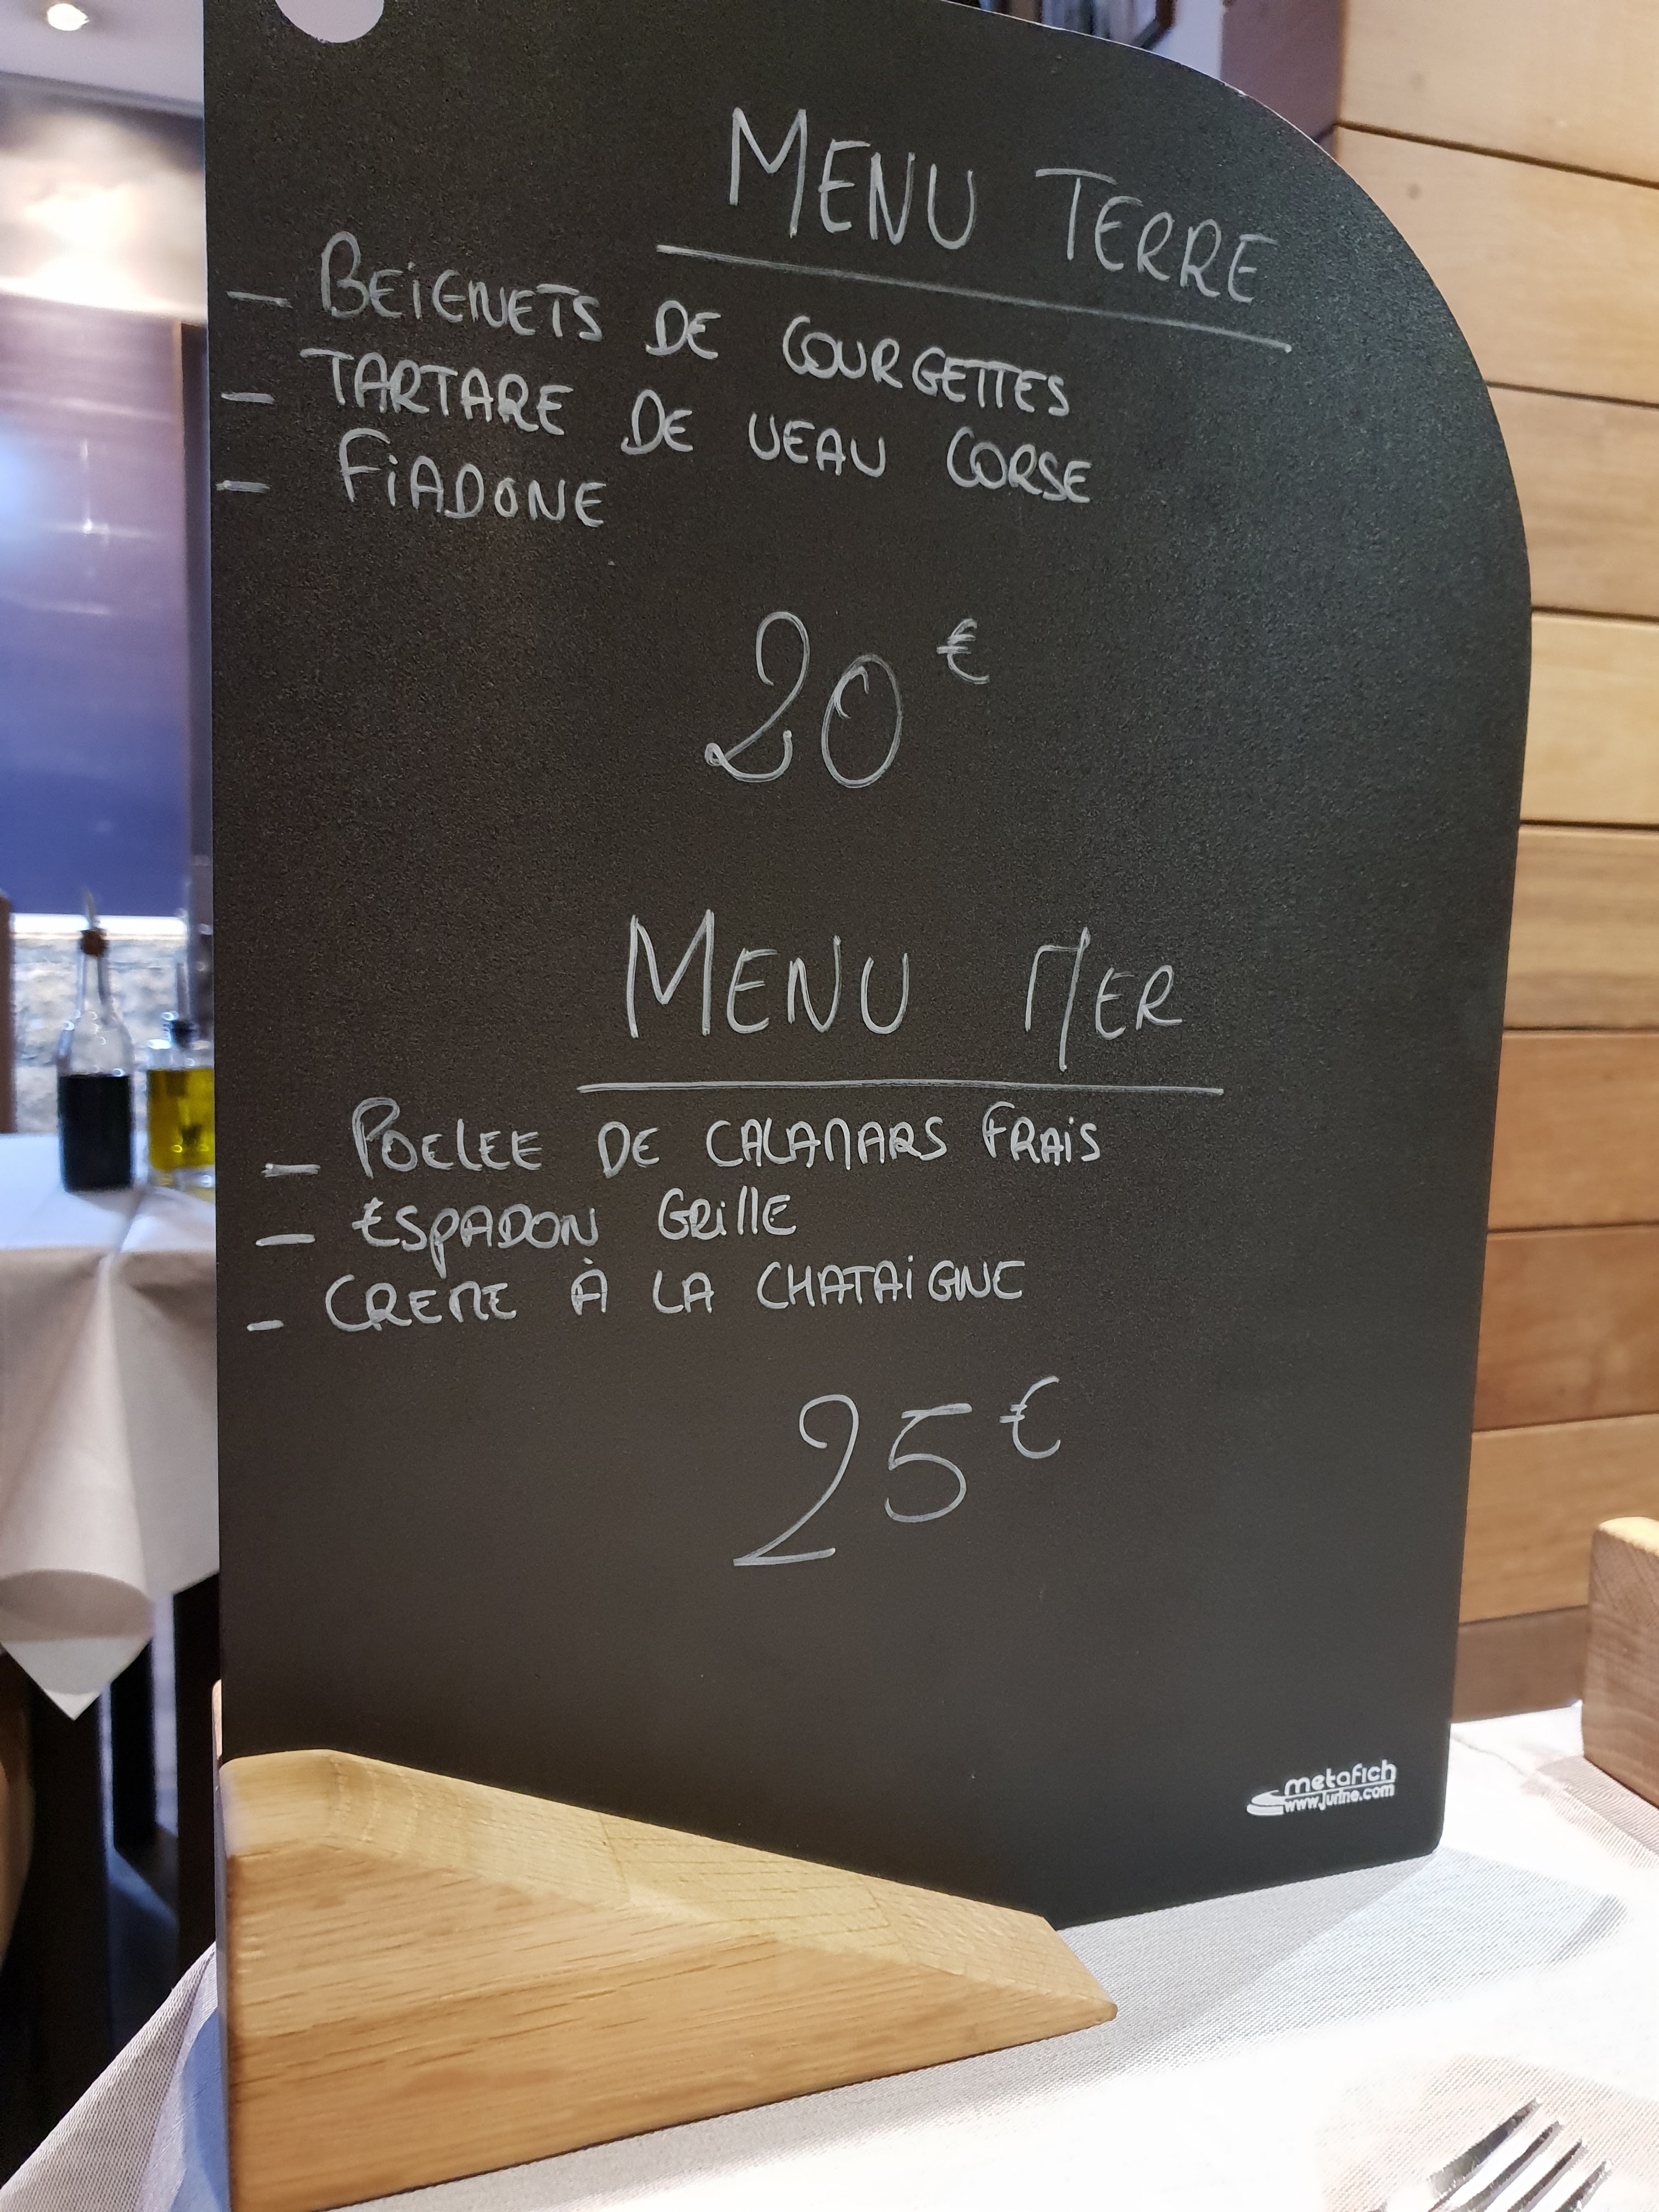 MENU TERRE
- BEIGNETS DE COURGETTES
- TARTARE DE VEAU CORSE
- FIADONE
20€
MENU MER
- POELEE DE CALAMARS FRAIS
- ESPADON GRILLE
- CREME À LA CHATAIGNE
25€
metafich
www.jurine.com